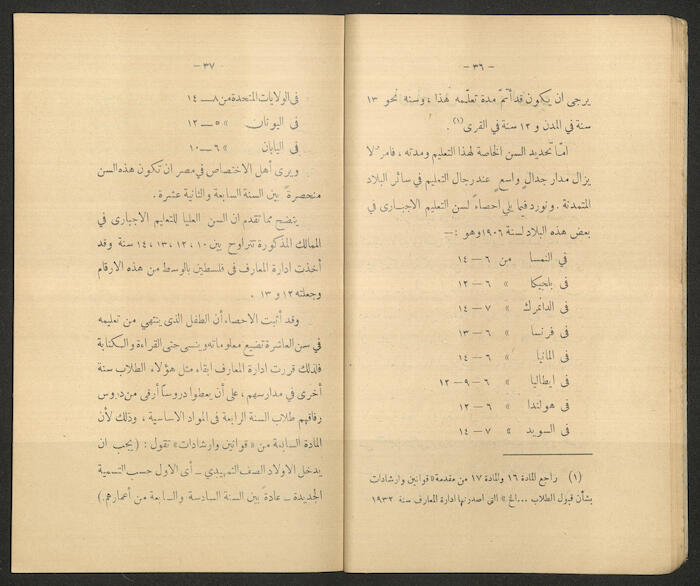 — ٣٦ —
يرجى ان يكون قد أتمّ مدة تعلّمه هذا ، وسنه نحو ١٣
سنة في المدن و ١٢ سنة في القرى (١).
امّا تحديد السن الخاصة لهذا التعليم ومدته ، فامر لا
يزال مدار جدال واسع عند رجال التعليم في سائر البلاد
المتمدنة . ونورد فيما يلي احصاءً لسن التعليم الاجبارى في
بعض هذه البلاد لسنة ١٩٠٦ وهو :—
في النمسا من ٦ — ١٤
فى بلجيكا » ٦ — ١٢
فى الدانمرك » ٧ — ١٤
فى فرنسا » ٦ — ١٣
فى المانيا » ٦ — ١٤
فى ايطاليا » ٦ — ٩ — ١٢
فى هولندا » ٦ — ١٢
فى السويد » ٧ — ١٤
(١) راجع المادة ١٦ والمادة ١٧ من مقدمة « قوانين وارشادات
بشأن قبول الطلاب ... الخ » التى اصدرتها ادارة المعارف سنة ١٩٣٢
— ٣٧ —
فى الولايات المتحدة من ٨ — ١٤
فى اليونان » ٥ — ١٢
فى اليابان » ٦ — ١٠
ويرى أهل الاختصاص فى مصر ان تكون هذه السن
منحصرة بين السنة السابعة والثانية عشرة .
يتضح مما تقدم ان السن العليا للتعليم الاجبارى في
الممالك المذكورة تتراوح بين ١٠ ، ١٢ ، ١٣ ، ١٤ سنة وقد
أخذت ادارة المعارف فى فلسطين بالوسط من هذه الارقام
وجعلته ١٢ و ١٣ .
وقد أثبت الاحصاء أن الطفل الذى ينتهي من تعليمه
في سن العاشرة تضيع معلوماته وينسى حتى القراءة والكتابة
فلذلك قررت ادارة المعارف ابقاء مثل هؤلاء الطلاب سنة
أخرى في مدارسهم ، على أن يعطوا دروساً أرقى من دروس
رفاقهم طلاب السنة الرابعة فى المواد الاساسية ، وذلك لأن
المادة السابعة من « قوانين وارشادات » تقول : (يجب ان
يدخل الاولاد الصف التمهيدي — أى الاول حسب التسمية
الجديدة — عادة بين السنة السادسة والسابعة من أعمارهم.)